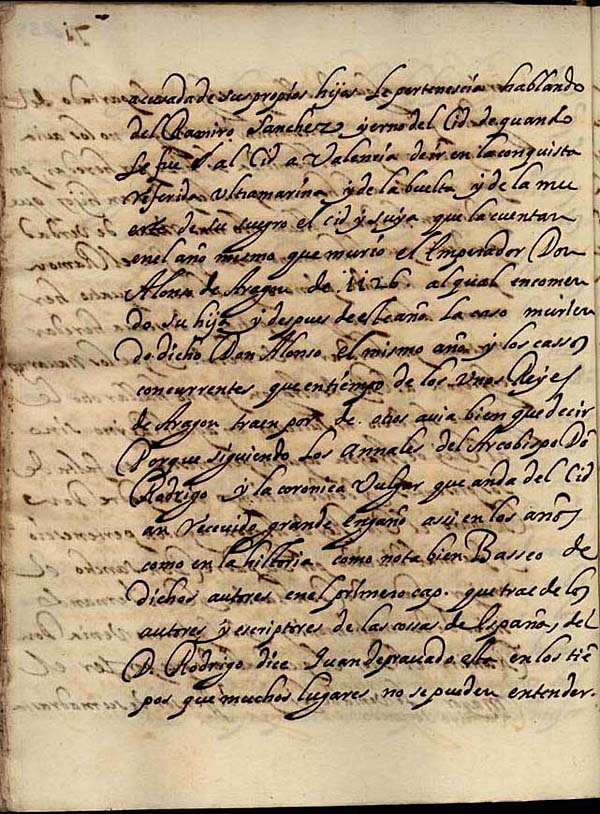 71
acusada de sus propios hijos le pertenescia hablando
del Ramiro Sanchez yerno del Cid de quando
se fue al Cid a Valencia de ir en la conquista
referida ultramarina y de la buelta y de la mu
erte de su suegro el Cid y suya que la cuentan
en el año mesmo que murio el Emperador Don
Alonso de Aragon de 1126 al qual encomen
do su hija y despues de este año la caso murien
do dicho Don Alonso el mismo año y los cassos
concurrentes que en tiempo de los unos Reyes
de Aragon traen por de otros avia bien que decir
Porque siguiendo los Annales del Arcobispo Dō
Rodrigo y la coronica Vulgar que anda del Cid
an recevido grande engaño asi en los años
como en la historia como nota bien Basseo de
dichos autores en el primero cap. que trae de los
autores y escriptores de las cossas de España, del
D. Rodrigo dice quan depravado esta en los tiē
pos que muchos lugares no se pueden entender.